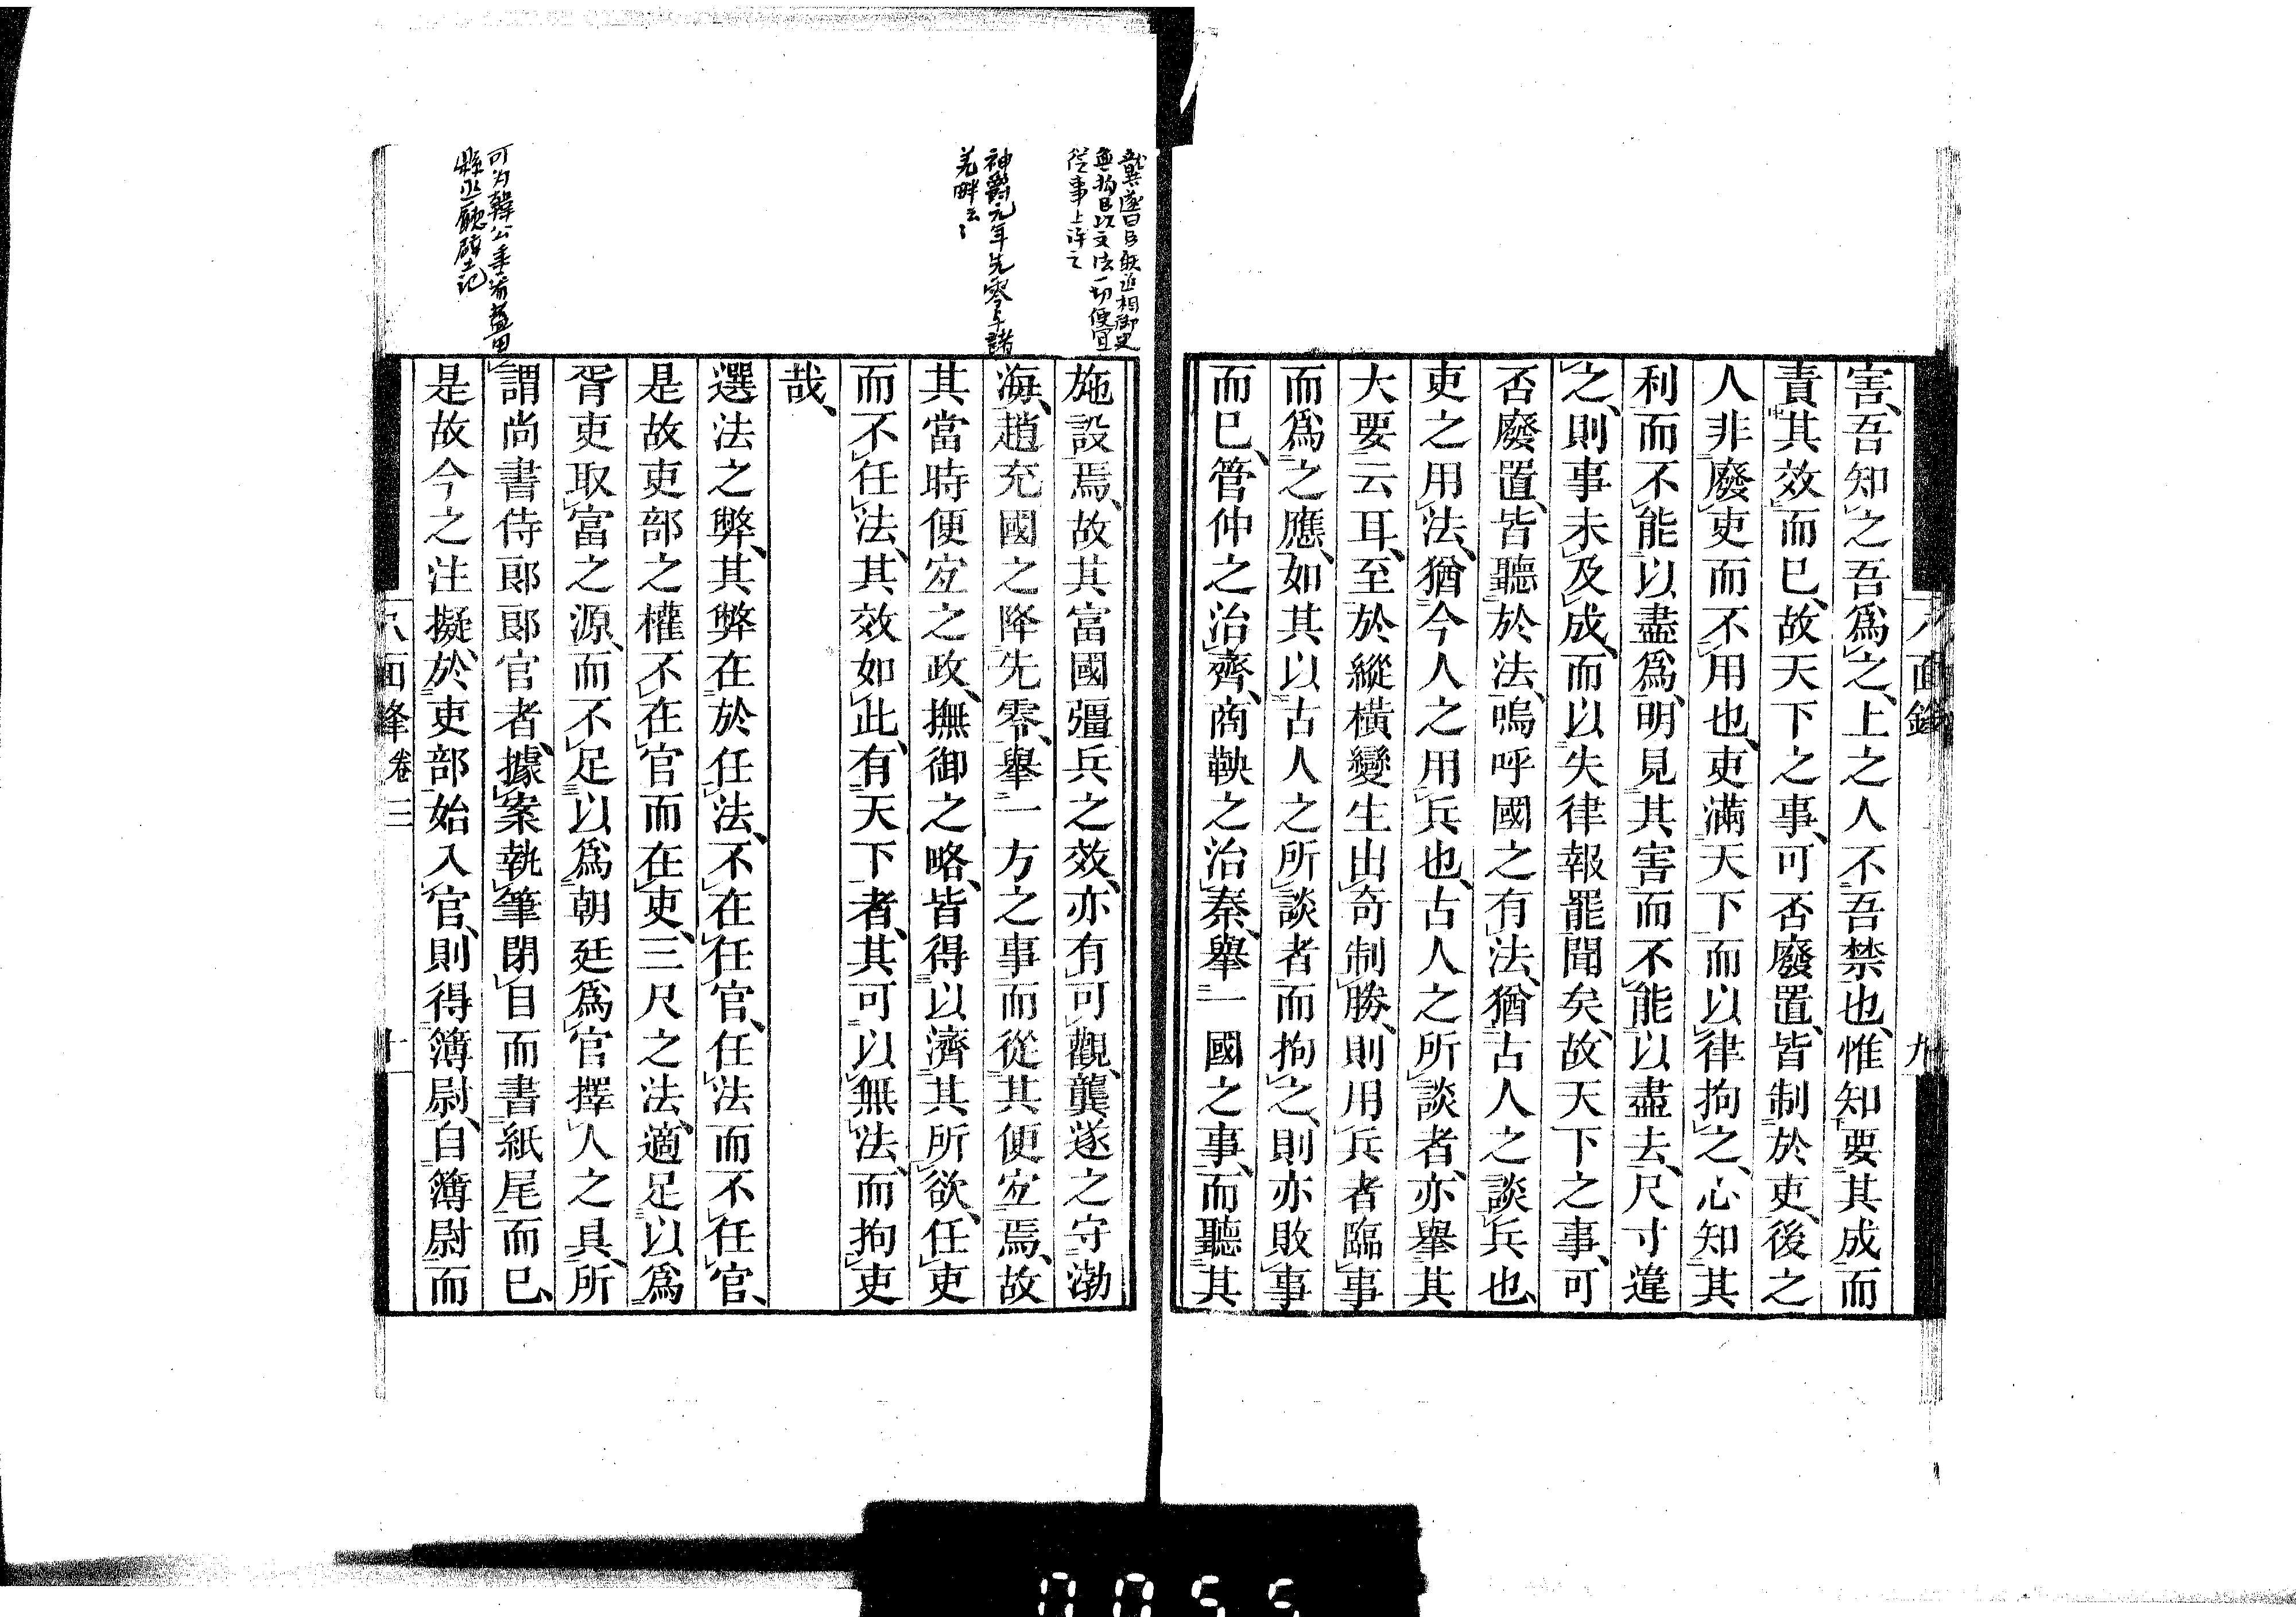 八面鋒
九
害、吾知之吾爲之、上之人不吾禁也、惟知要其成而
責其效而已、故天下之事、可否廢置、皆制於吏、後之
人非廢吏而不用也、吏滿天下而以律拘之、心知其
利而不能以盡爲、明見其害而不能以盡去、尺寸違
之、則事未及成、而以失律報罷聞矣、故天下之事、可
否廢置、皆聽於法、嗚呼國之有法、猶古人之談兵也、
吏之用法、猶今人之用兵也、古人之所談者、亦舉其
大要云耳、至於縱橫變生出奇制勝、則用兵者臨事
而爲之應、如其以古人之所談者而拘之、則亦敗事
而已、管仲之治齊、商鞅之治秦、舉一國之事、而聽其
龔遂曰臣無迫相御史
無拘臣以文法一切便宜
從事上許之
神爵元年先零与諸
羌畔云〻
可为韓公手前藍田
縣丞廳壁記
施設焉、故其富國彊兵之效、亦有可觀、龔遂之守渤
海、趙充國之降先零、舉一方之事而從其便宜焉、故
其當時便宜之政、撫御之略、皆得以濟其所欲、任吏
而不任法、其效如此、有天下者、其可以無法、而拘吏
哉、
選法之弊、其弊在於任法、不在任官、任法而不任官、
是故吏部之權不在官而在吏、三尺之法、適足以爲
胥吏取富之源、而不足以爲朝廷爲官擇人之具、所
謂尚書侍郎郎官者、據案執筆閉目而書紙尾而已、
是故今之注擬、於吏部始入官、則得簿尉、自簿尉而
八面鋒卷三
十
0055